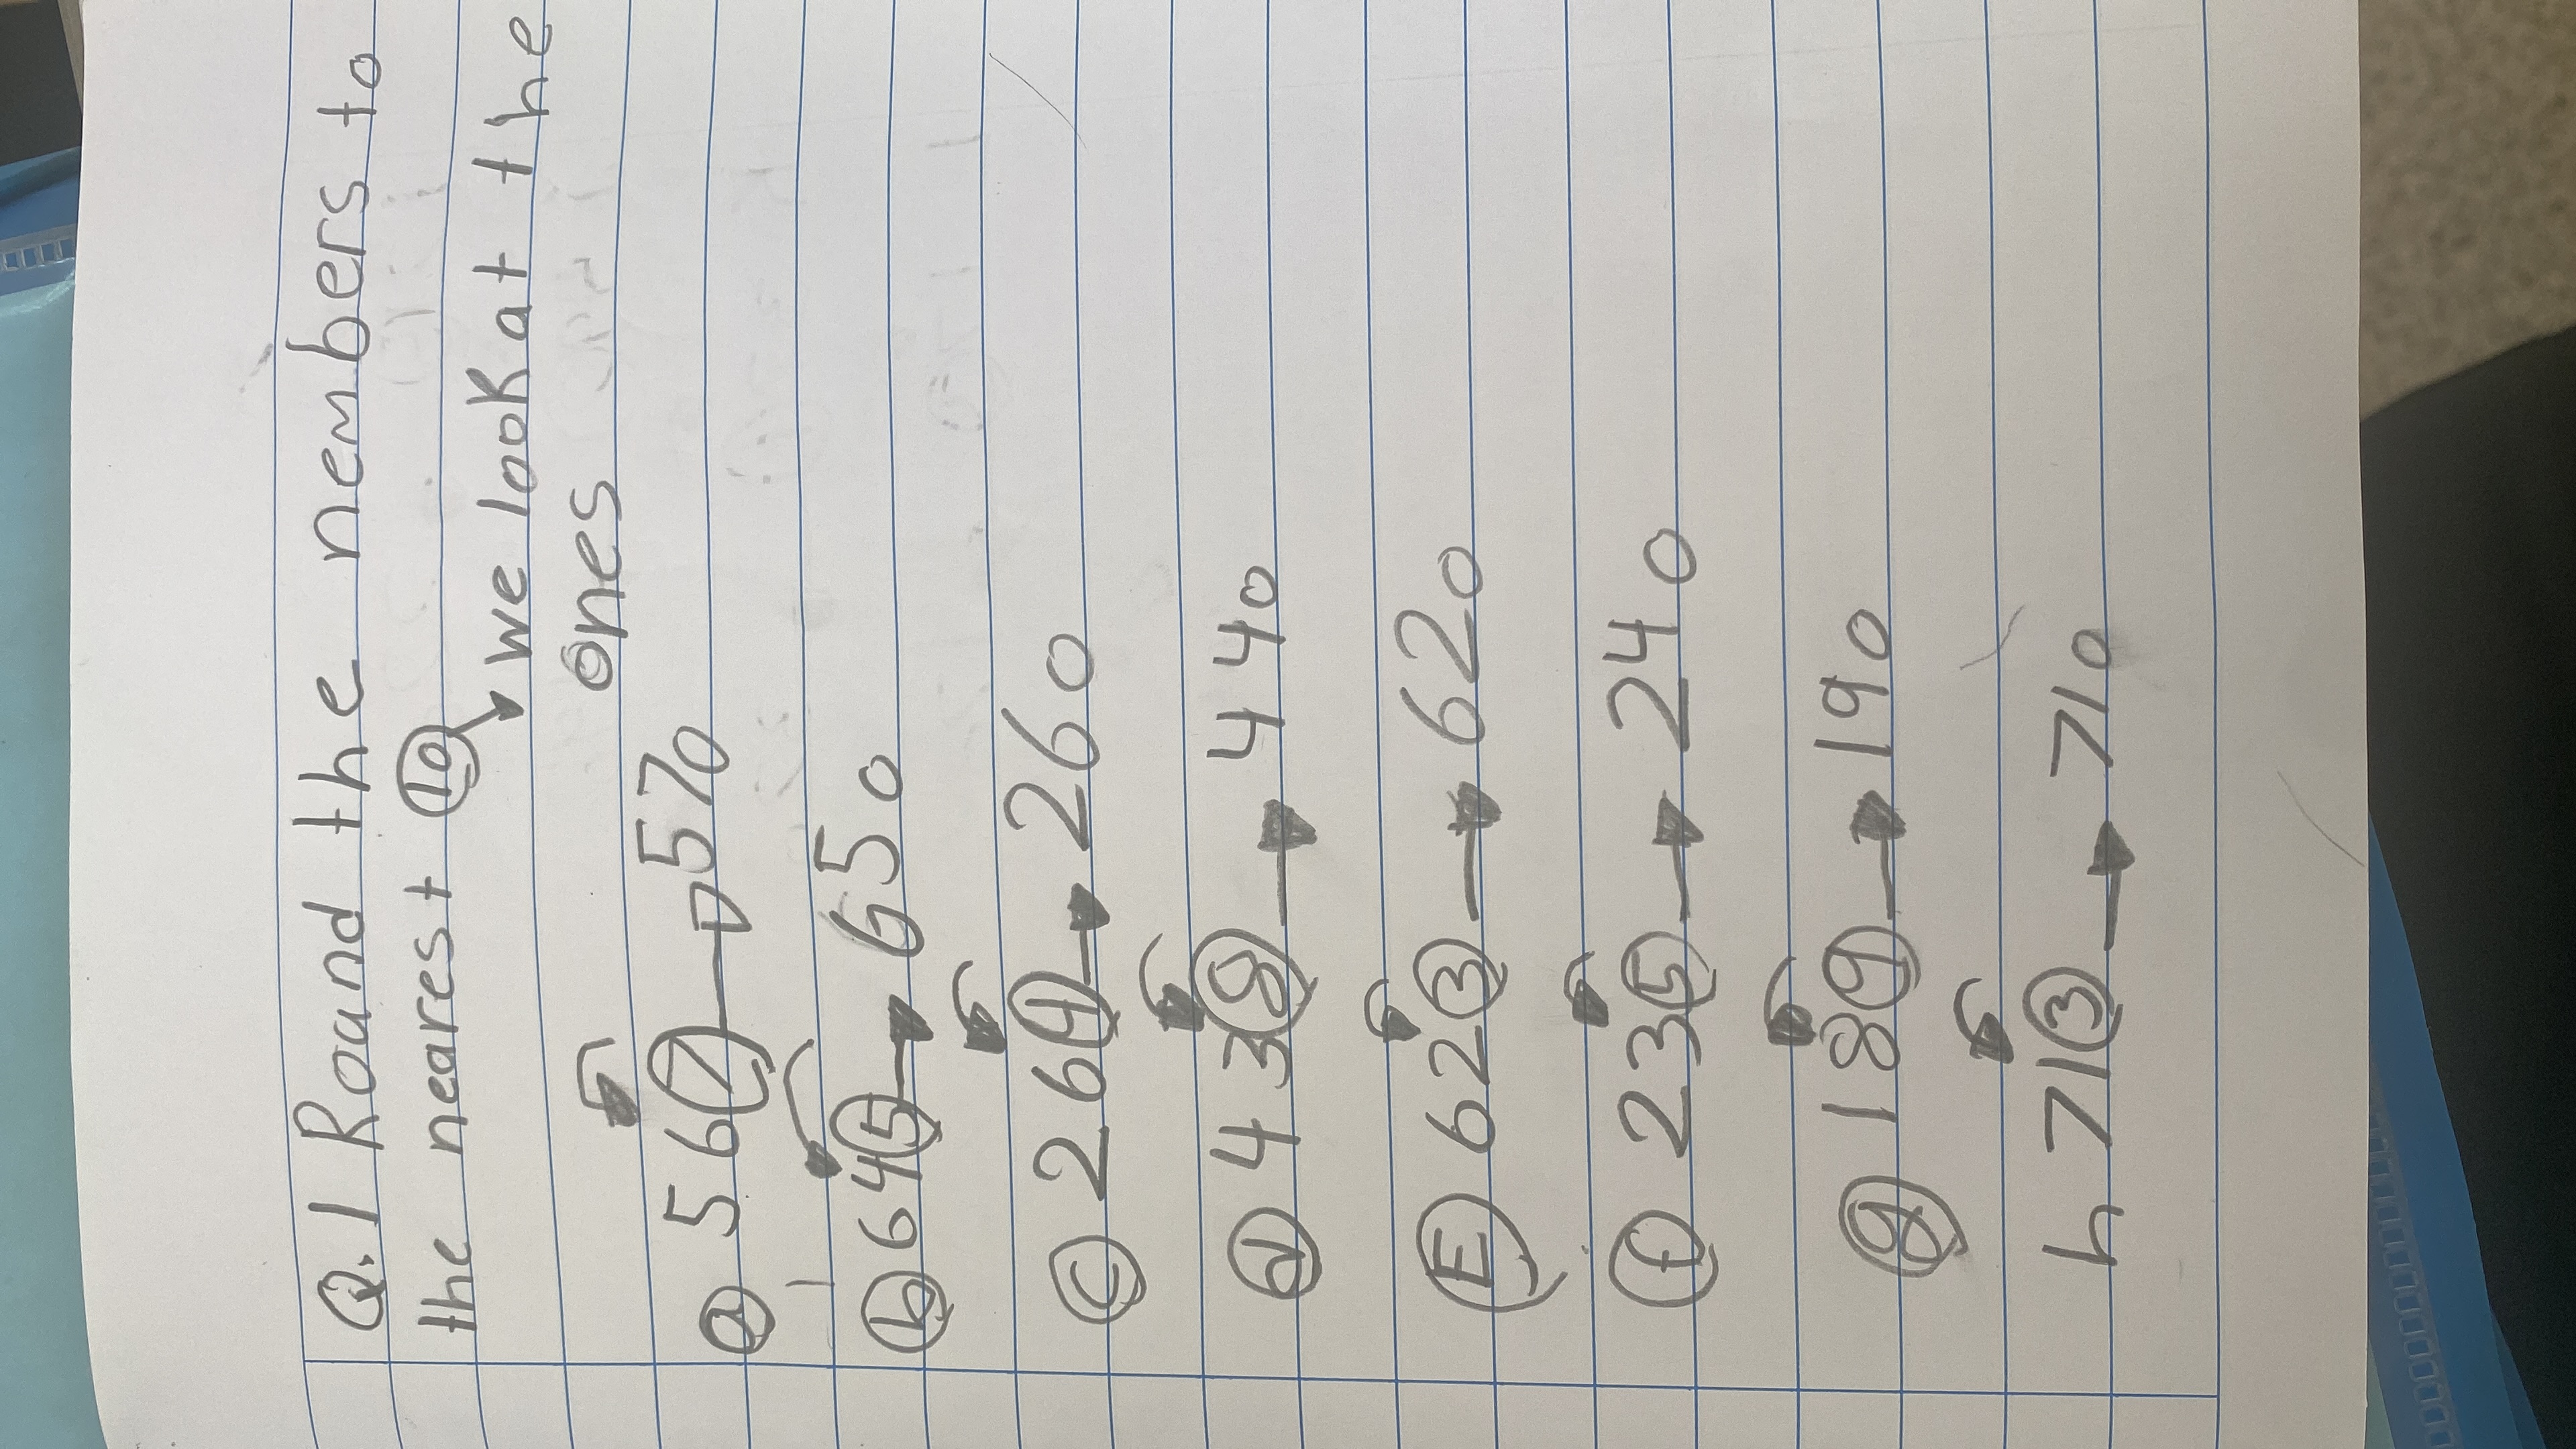 Q.1 Round the nembers to
the nearest 10
we look at the
ones
a 567 → 570
b 645 → 650
c 264 → 260
d 438 → 440
E 623 → 620
f 235 → 240
g 189 → 190
h 713 → 710